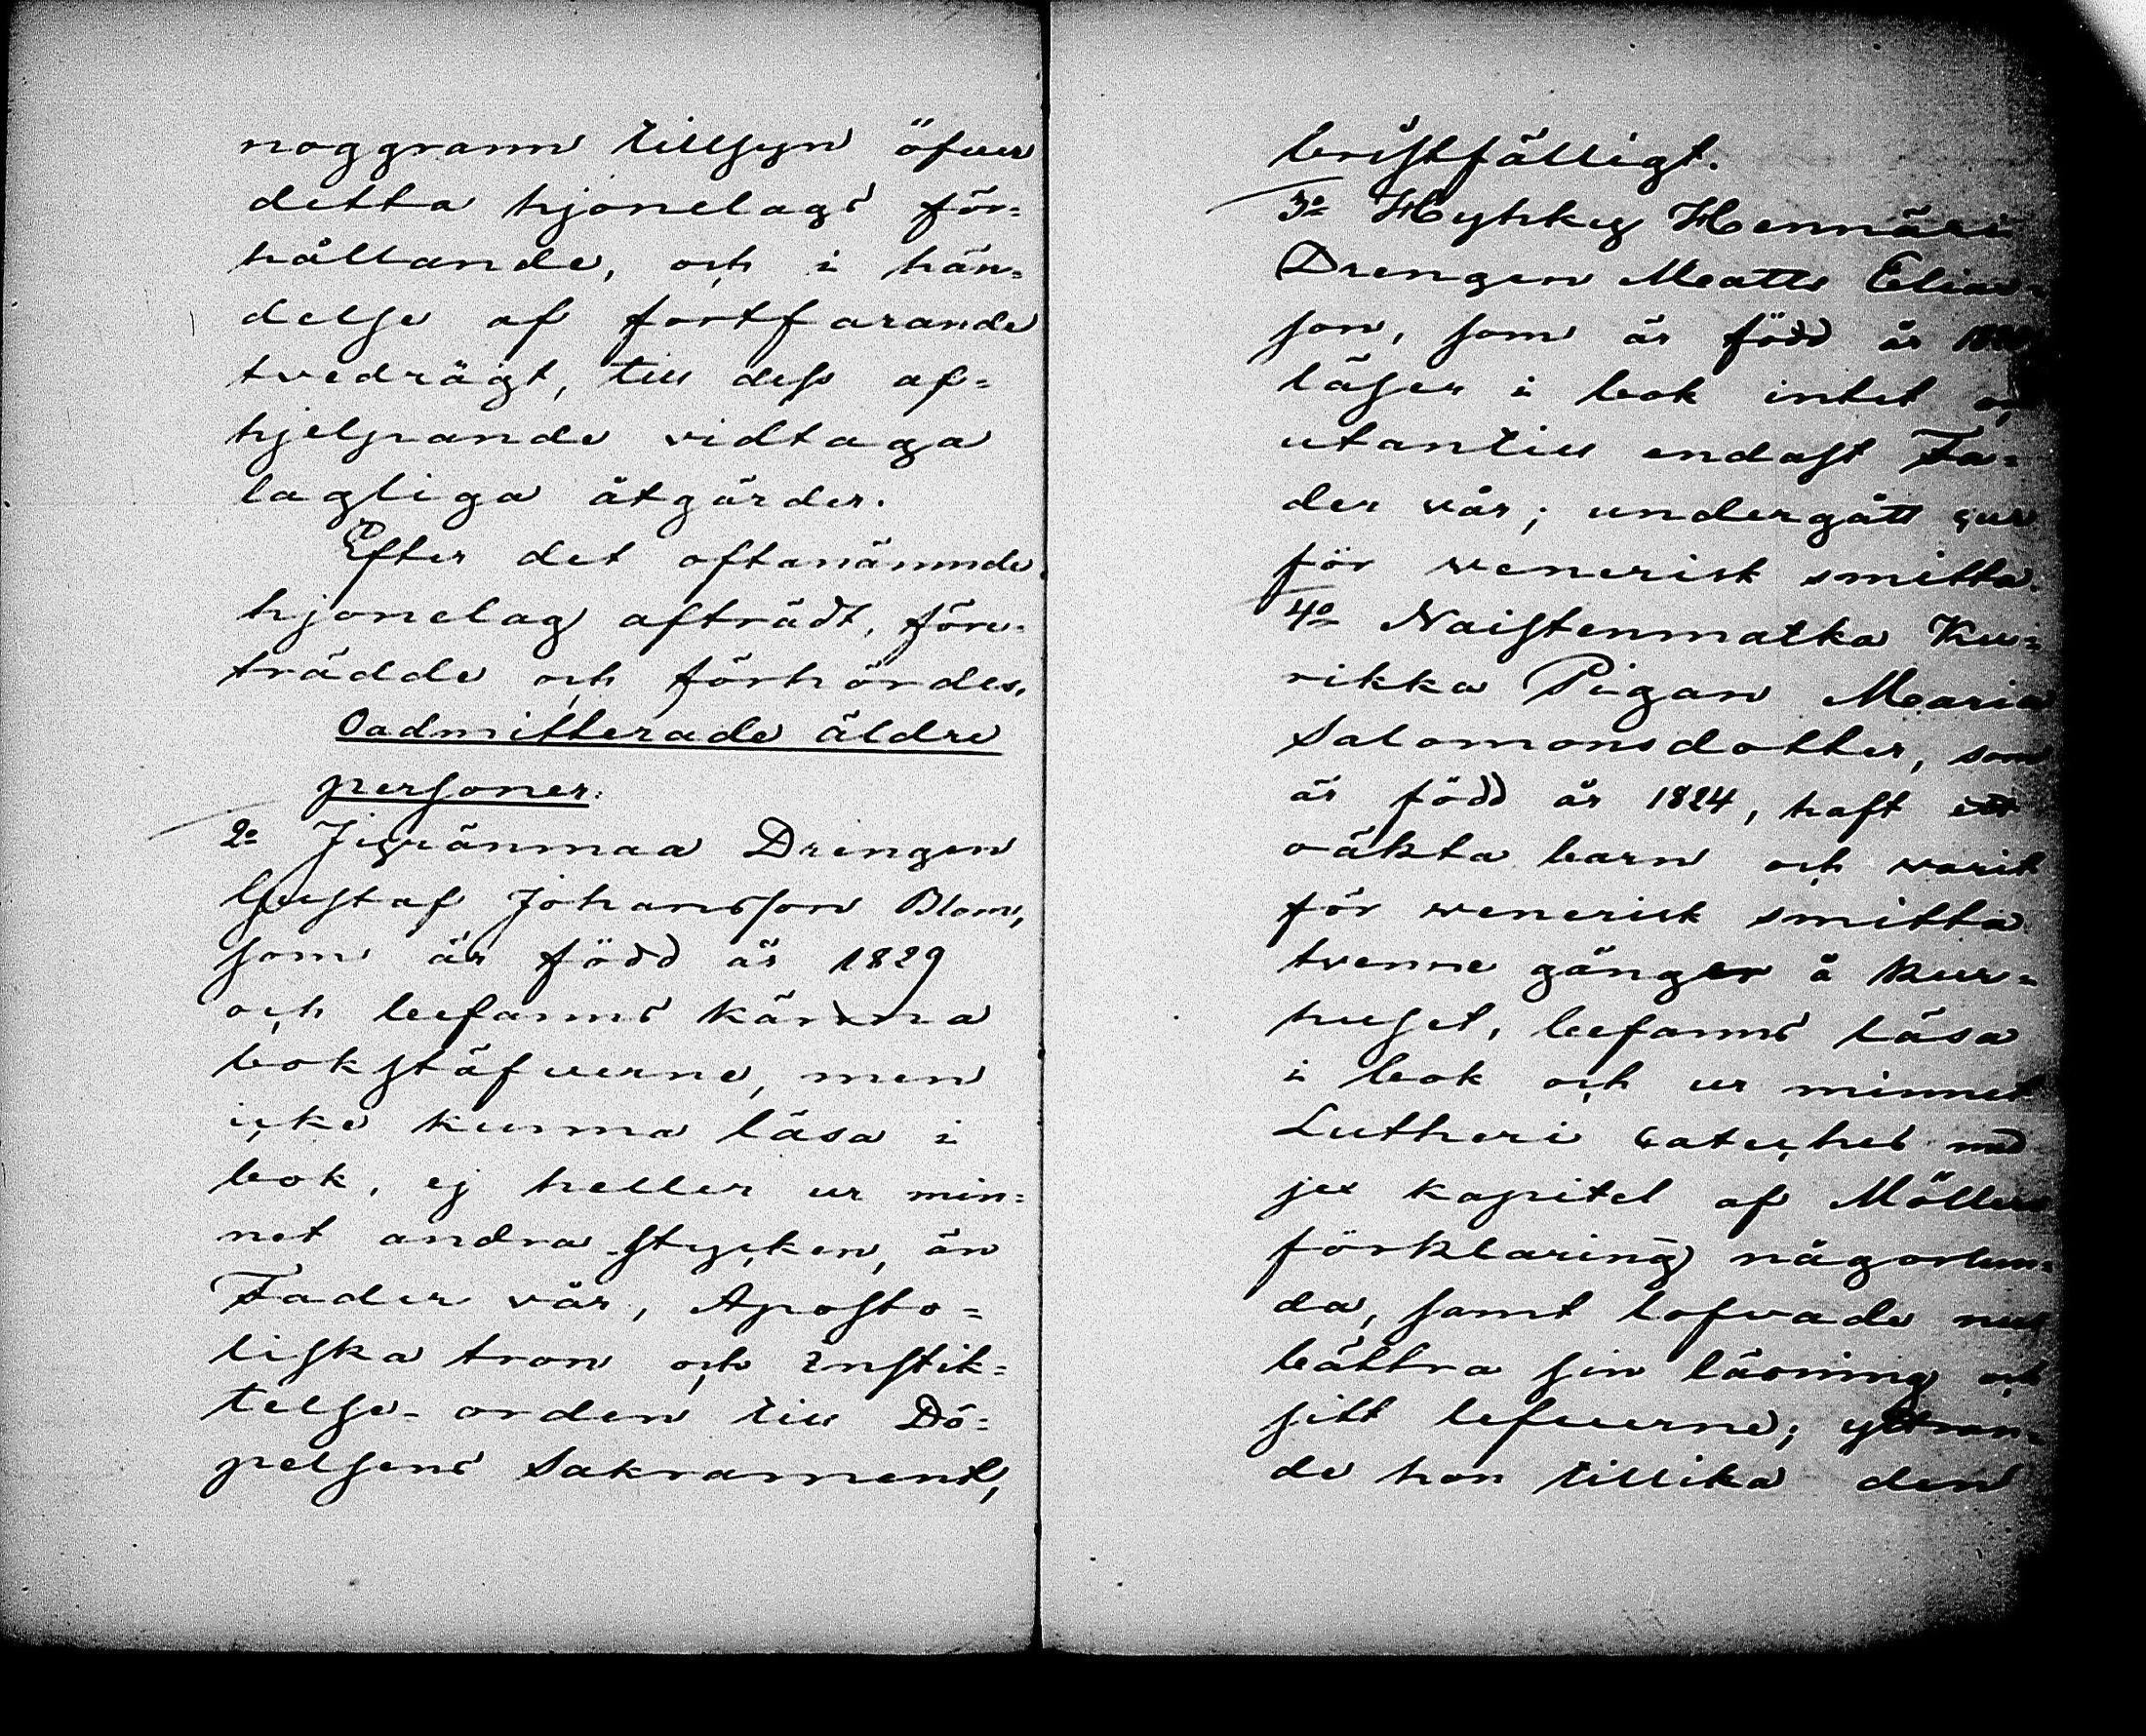 noggrann tillsyn öfver
detta hjonelags för=
hållande, och i hän=
delse af fortfarande
tvedrägt, till dess af=
hjelpande vidtaga
lagliga åtgärder.
Efter det oftanämnde
hjonelag afträdt, före=
trädde och förhördes.
Oadmitterade äldre
personer:
2o Drengen
Gustaf Johansson Blom,
som är född år 1829
och befanns känna
bokstäfverne, men
icke kunna läsa i
bok, ej heller ur min=
net andra stycken, än
Fader vår, Aposto=
liska tron och instik=
telse-orden till Dö=
pelsens Sakrament,
bristfälligt.
3o Hyhky Hennäri
Drengen Matts Elias=
son, som är född år
läser i bok intet och
utantill endast Fa=
der vår; undergått cur
för venerisk smitta.
4o Naistenmatka Ku=
rikka Pigan Maria
Salomonsdotter, som
är född år 1824, haft ett
oäkta barn och varit
för venerisk smitta
tvenne gånger å kur=
huset, befanns läsa
i bok och ur minnet
Lutheri catechis med
sex kapitel af Möllers
förklaring någorlun=
da, samt lofvade nu
bättra sin läsning och
sitt lefverne; yttran=
de hon tillika den